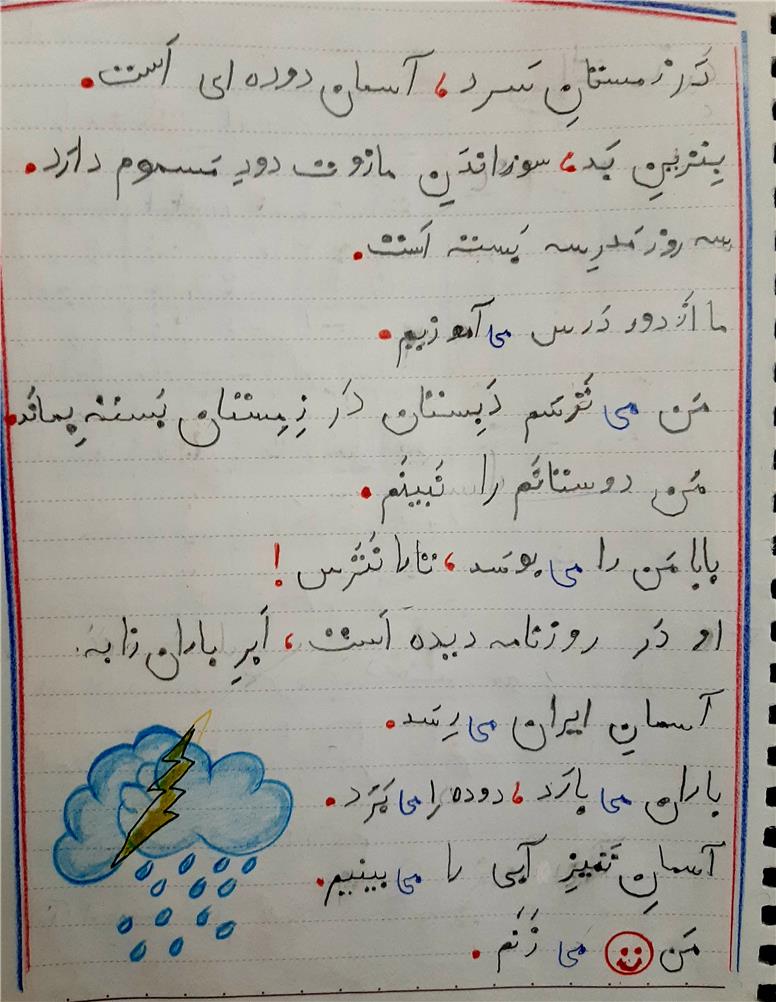 دَر زمستانِ سَرد، آسمان دوده ای اَست.
بِنزینِ بَد، سوزاندَنِ مازوت دودِ مَسموم دارَد.
سه روز مَدرِسه بَسته اَست.
ما اَز دور دَرس می آموزیم.
مَن می تَرسَم دَبِستان دَر زِمِستان بَسته بِمانَد.
مَن دوستانَم را نَبینَم.
بابا مَن را می بوسَد، تارا نَتَرس!
او دَر روزنامه دیده اَست، اَبرِ باران زا به.
آسمانِ ایران می رِسَد.
باران می بارَد، دوده را می بَرَد.
آسمانِ تَمیزِ آبی را می بینیم.
مَن می زَنَم.